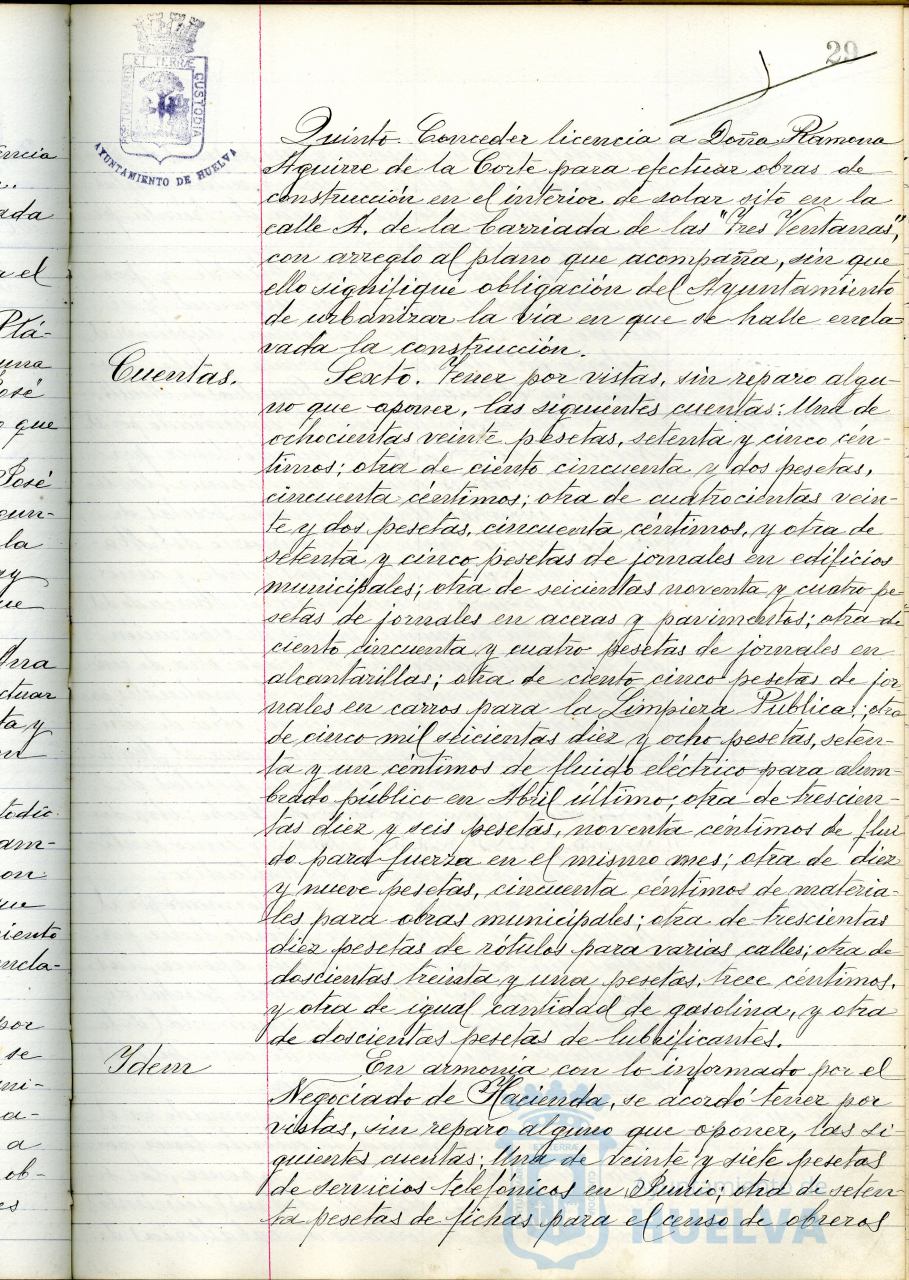 29
ET TERRÆ
CUSTODIA
AYUNTAMIENTO DE HUELVA
Quinto. Conceder licencia a Doña Ramona
Aguirre de la Corte para efectuar obras de
construcción en el interior de solar sito en la
calle A. de la barriada de las "Tres Ventanas",
con arreglo al plano que acompaña, sin que
ello signifique obligación del Ayuntamiento
de urbanizar la via en que se halle encla-
vada la construcción.
Cuentas.
Sexto. Tener por vistas, sin reparo algu-
no que oponer, las siguientes cuentas: Una de
ochocientas veinte pesetas, setenta y cinco cén-
timos; otra de ciento cincuenta y dos pesetas,
cincuenta céntimos; otra de cuatrocientas vein-
te y dos pesetas, cincuenta céntimos, y otra de
setenta y cinco pesetas de jornales en edificios
municipales; otra de seicientas noventa y cuatro pe-
setas de jornales en aceras y pavimentos; otra de
ciento cincuenta y cuatro pesetas de jornales en
alcantarillas; otra de ciento cinco pesetas de jor-
nales en carros para la Limpieza Pública; otra
de cinco mil seicientas diez y ocho pesetas, seten-
ta y un céntimos de fluido eléctrico para alum-
brado público en Abril último; otra de trescien-
tas diez y seis pesetas, noventa céntimos de flui
do para fuerza en el mismo mes; otra de diez
y nueve pesetas, cincuenta céntimos de materia-
les para obras municipales; otra de trescientas
diez pesetas de rótulos para varias calles; otra de
doscientas treinta y una pesetas, trece céntimos,
y otra de igual cantidad de gasolina, y otra
de doscientas pesetas de lubrificantes.
Idem
En armonía con lo informado por el
Negociado de Hacienda, se acordó tener por
vistas, sin reparo alguno que oponer, las si-
guientes cuentas: Una de veinte y siete pesetas
de servicios telefónicos en Junio; otra de seten-
ta pesetas de fichas para el censo de obreros
Ayuntamiento de
HUELVA